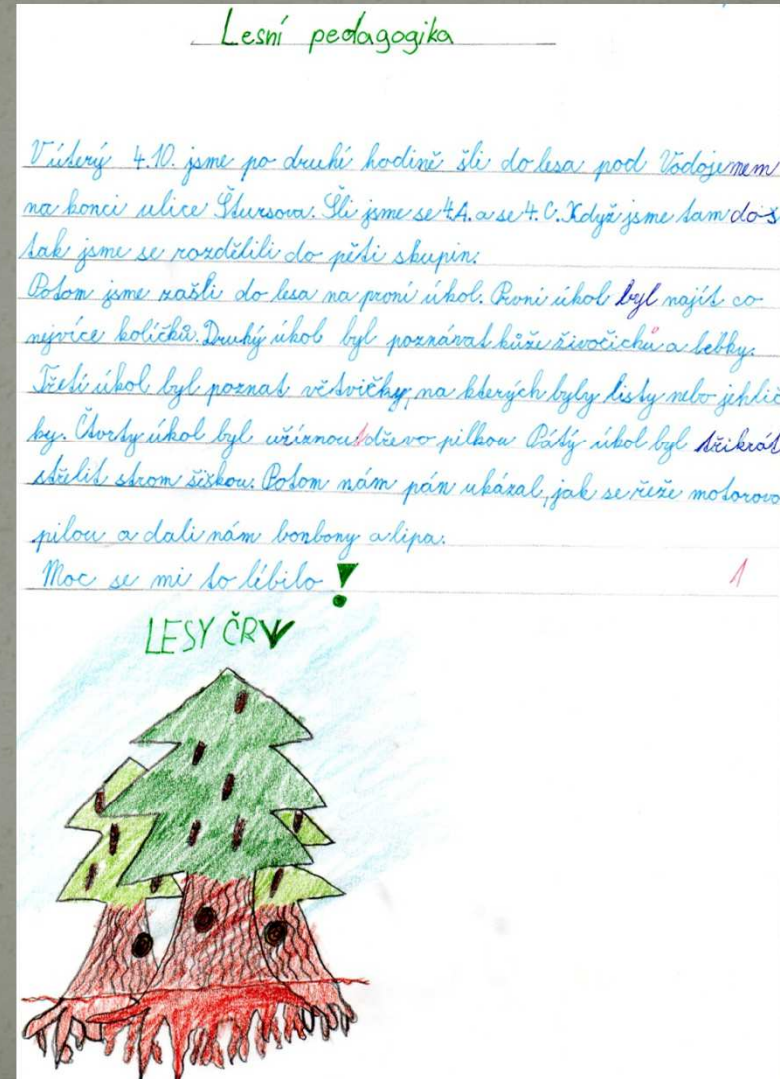 Lesní pedagogika
V úterý 4.10. jsme po druhí hodině šli do lesa pod Vodojemem
na konci ulice Štursova. Šli jsme se 4.A. a se 4. C. Když jsme tam doš
tak jsme se rozdělili do pěti skupin.
Potom jsme zašli do lesa na první úkol. První úkol byl najít co
nejvíce kolíčků. Druhý úkol byl poznávat kůže živočichů a lebky.
Třetí úkol byl poznat větvičky, na kterých byly listy nebo jehlič
ky. Čtvrtý úkol byl uříznout dřevo pilkou Pátý úkol byl třikrát
střelit strom šiškou. Potom nám pán ukázal, jak se řeže motorovo
pilou a dali nám bonbony a lipa.
Moc se mi to líbilo!
1
LESY ČR